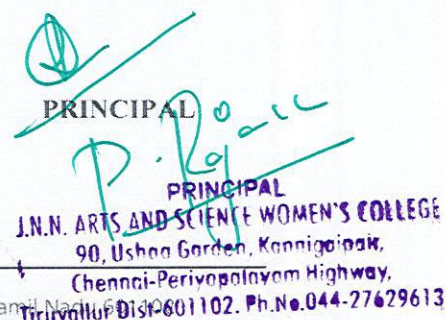 PRINCIPAL
P. Rajan
PRINCIPAL
J.N.N. ARTS AND SCIENCE WOMEN'S COLLEGE
90, Ushaa Garden, Kannigaipair,
Chennai-Periyapalayam Highway,
Tiruvallur Dist-601102. Ph.No.044-27629613
amil Nadu